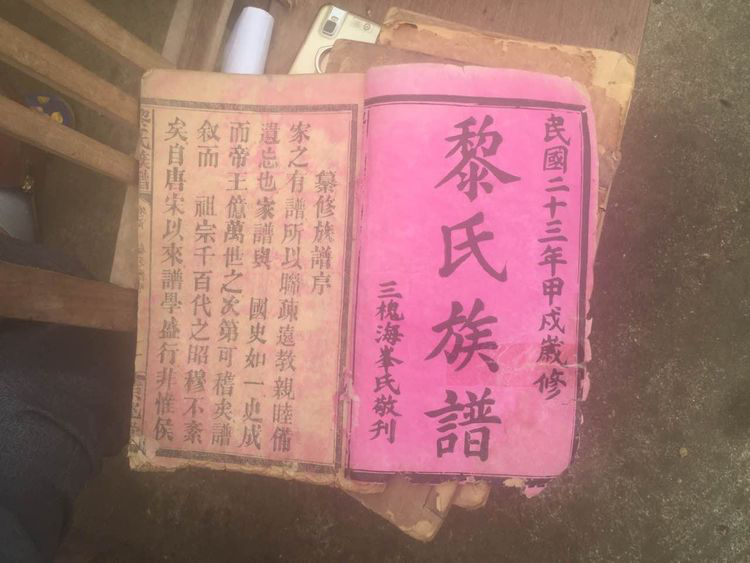 民國二十三年甲戌歲修
黎氏族譜
三槐海峯氏敬刊
纂修族譜序
家之有譜所以聯疎遠教親睦備
遺忘也家譜與 國史如一史成
而帝王億萬世之次第可稽矣譜
叙而 祖宗千百代之昭穆不紊
矣自唐宋以來譜學盛行非惟侯
黎氏族譜